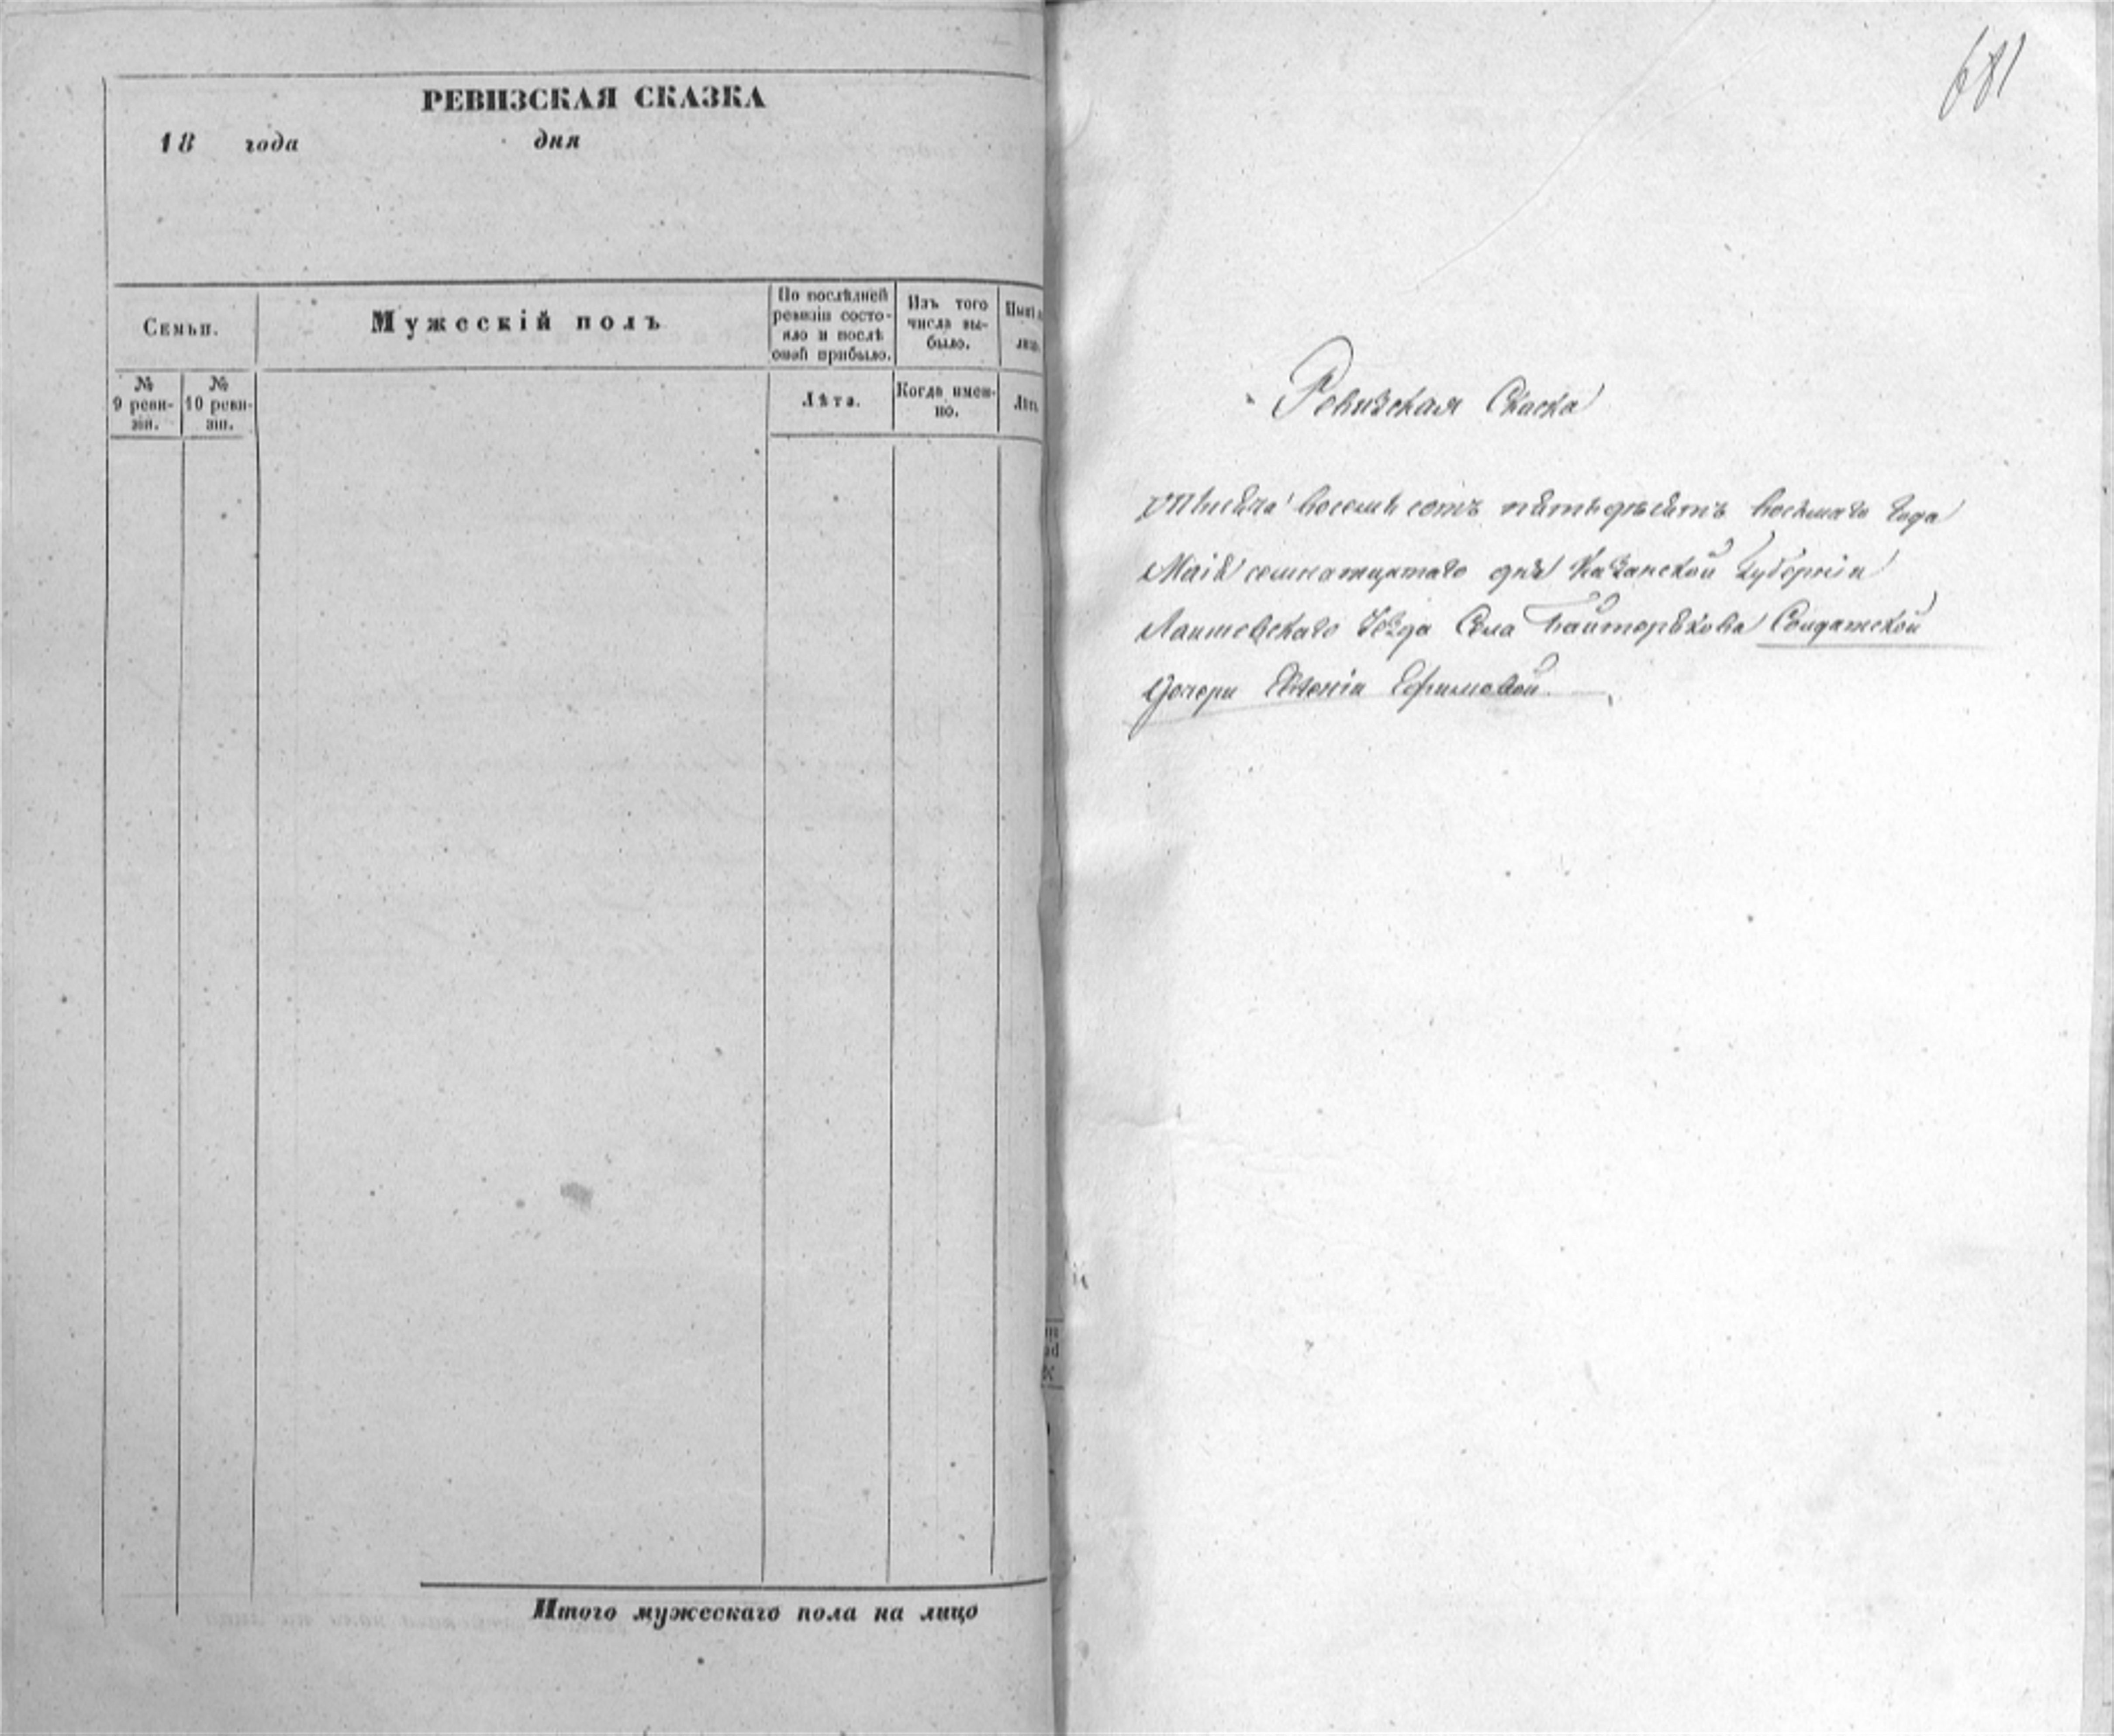 РЕВИЗСКАЯ СКАЗКА
18 года дня
Семьи.
Мужескій полъ
По послѣдней
ревизіи состо-
яло и послѣ
оной прибыло.
Изъ того
числа вы-
было.
№
9 реви-
зіи.
№
10 реви-
зіи.
Лѣта.
Когда имен-
но.
Итого мужескаго пола на лицо
681
Ревизская Скаска
Тысяча восемь сотъ пятьдесятъ восьмаго года
Маія семнатцатаго дня Казанской Губерніи
Лаишевскаго Уѣзда Села Солдатской
дочери Ефимовой.